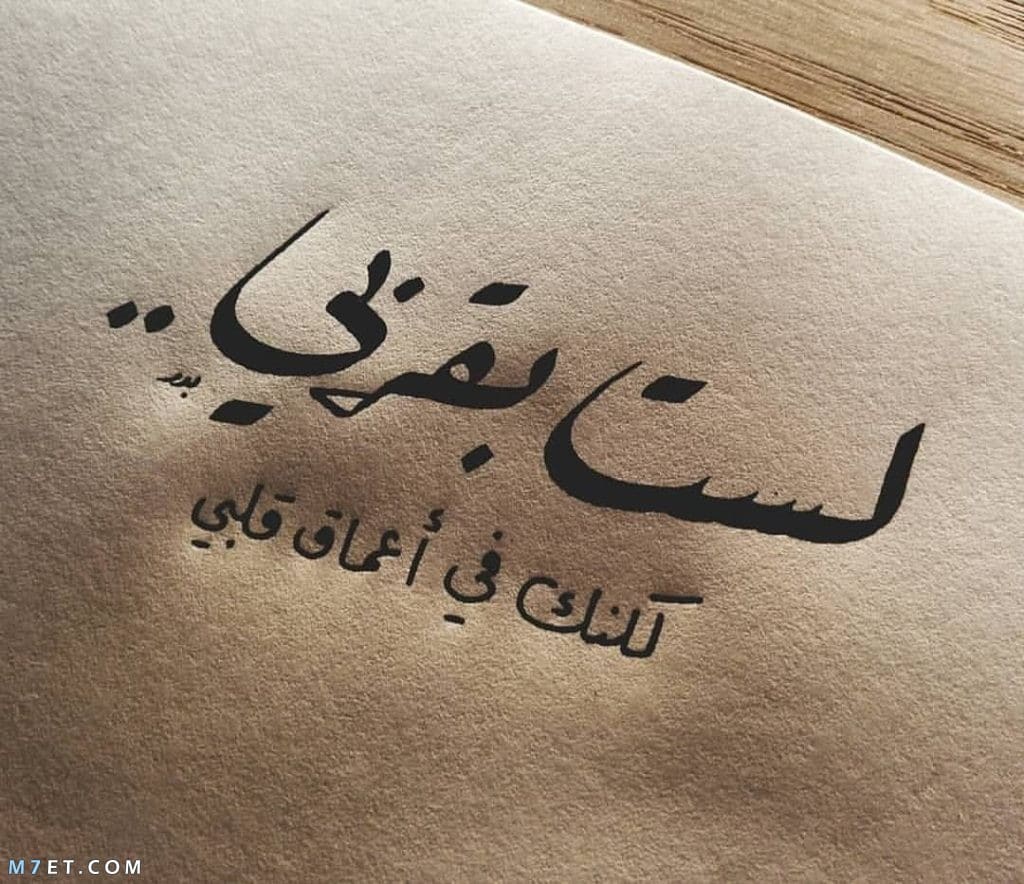 لست بقربي ..
بدر
لكنك في أعماق قلبي
M7ET.COM